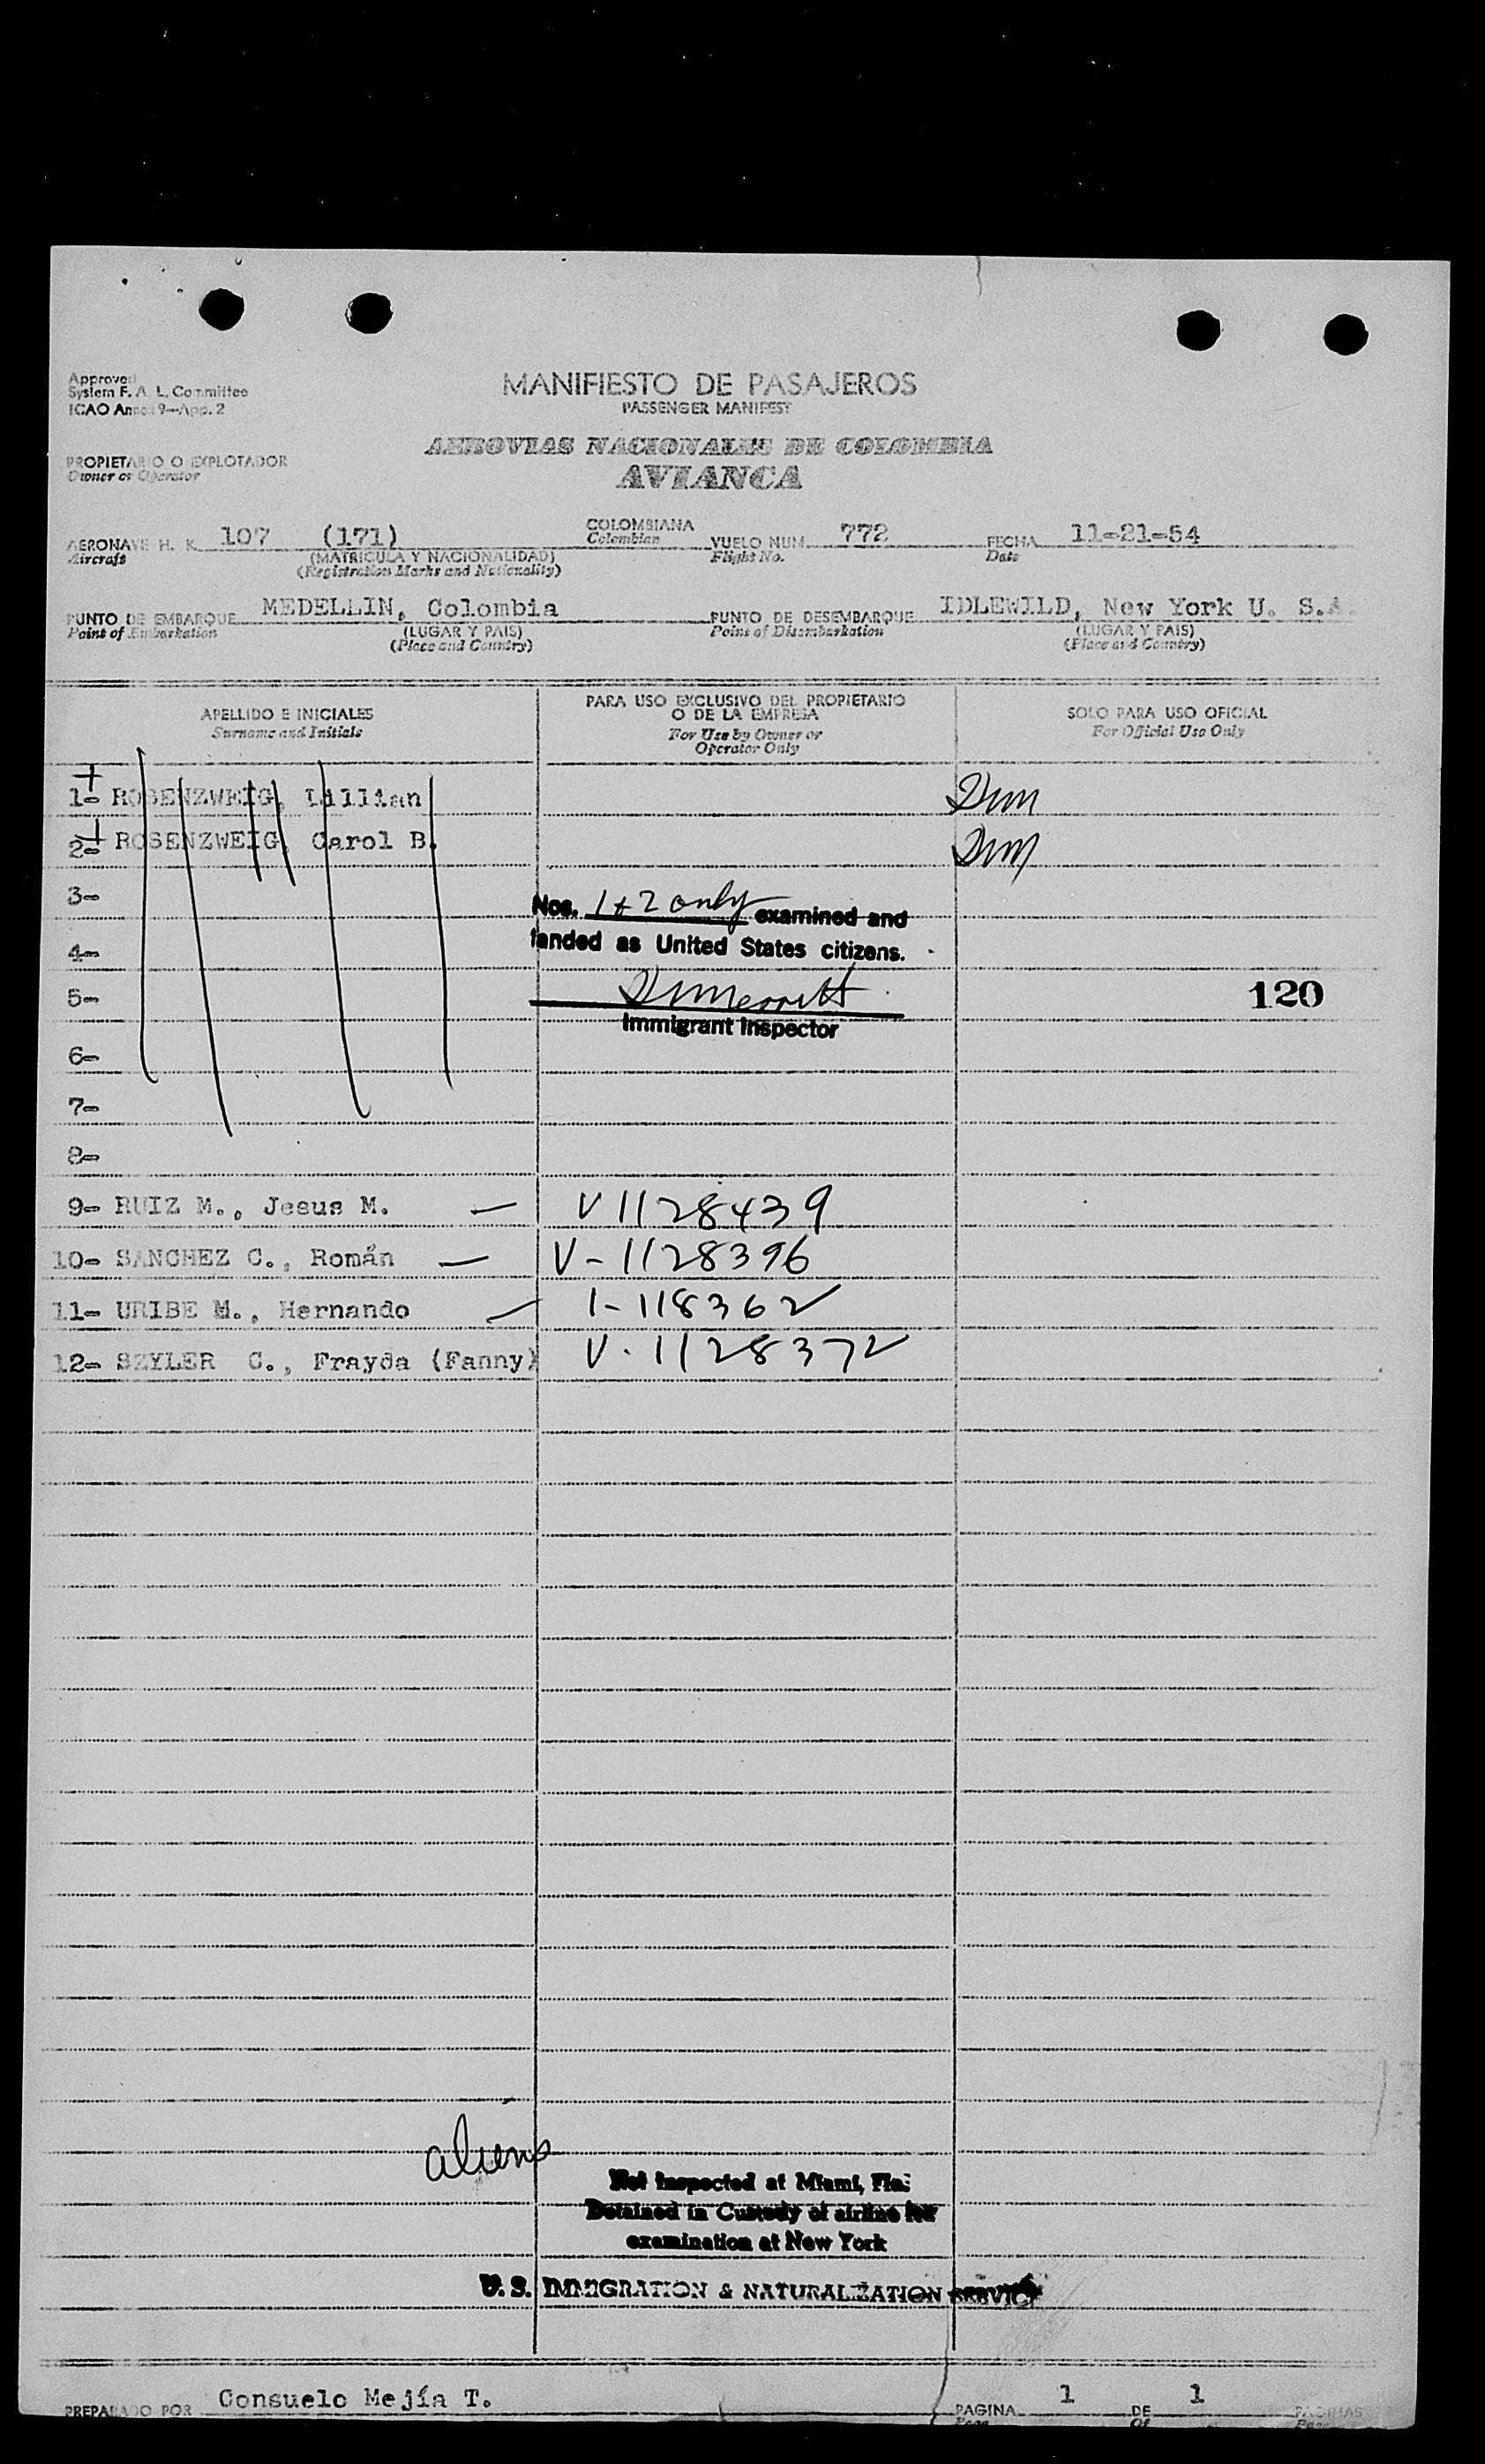 Approved
System F. A. L. Committee
ICAO Annex 9—App. 2
MANIFIESTO DE PASAJEROS
PASSENGER MANIFEST
PROPIETARIO O EXPLOTADOR
Owner or Operator
AEROVIAS NACIONALES DE COLOMBIA
AVIANCA
AERONAVE H. K. 107 (171) COLOMBIANA VUELO NUM. 772 FECHA 11-21-54
Aircraft (MATRICULA Y NACIONALIDAD) Colombian Flight No. Date
(Registration Marks and Nationality)
PUNTO DE EMBARQUE MEDELLIN, Colombia PUNTO DE DESEMBARQUE IDLEWILD, New York U. S.A.
Point of Embarkation (LUGAR Y PAIS) Point of Disembarkation (LUGAR Y PAIS)
(Place and Country) (Place and Country)
APELLIDO E INICIALES
Surname and Initials
PARA USO EXCLUSIVO DEL PROPIETARIO
O DE LA EMPRESA
For Use by Owner or
Operator Only
SOLO PARA USO OFICIAL
For Official Use Only
1- ROSENZWEIG, Lillian
2- ROSENZWEIG, Carol B.
3-
Nos. 1 & 2 only examined and
4-
landed as United States citizens.
5- 120
Immigrant Inspector
6-
7-
8-
9- RUIZ M., Jesus M. — V 1128439
10- SANCHEZ C., Román — V-1128396
11- URIBE M., Hernando — 1-118362
12- SZYLER C., Frayda (Fanny) V. 1128372
aliens
Not Inspected at Miami, Fla.
Detained in Custody of airline for
examination at New York
U. S. IMMIGRATION & NATURALIZATION SERVICE
PREPARADO POR Consuelo Mejía T. PAGINA 1 DE 1 PAGINAS
Page Of Pages